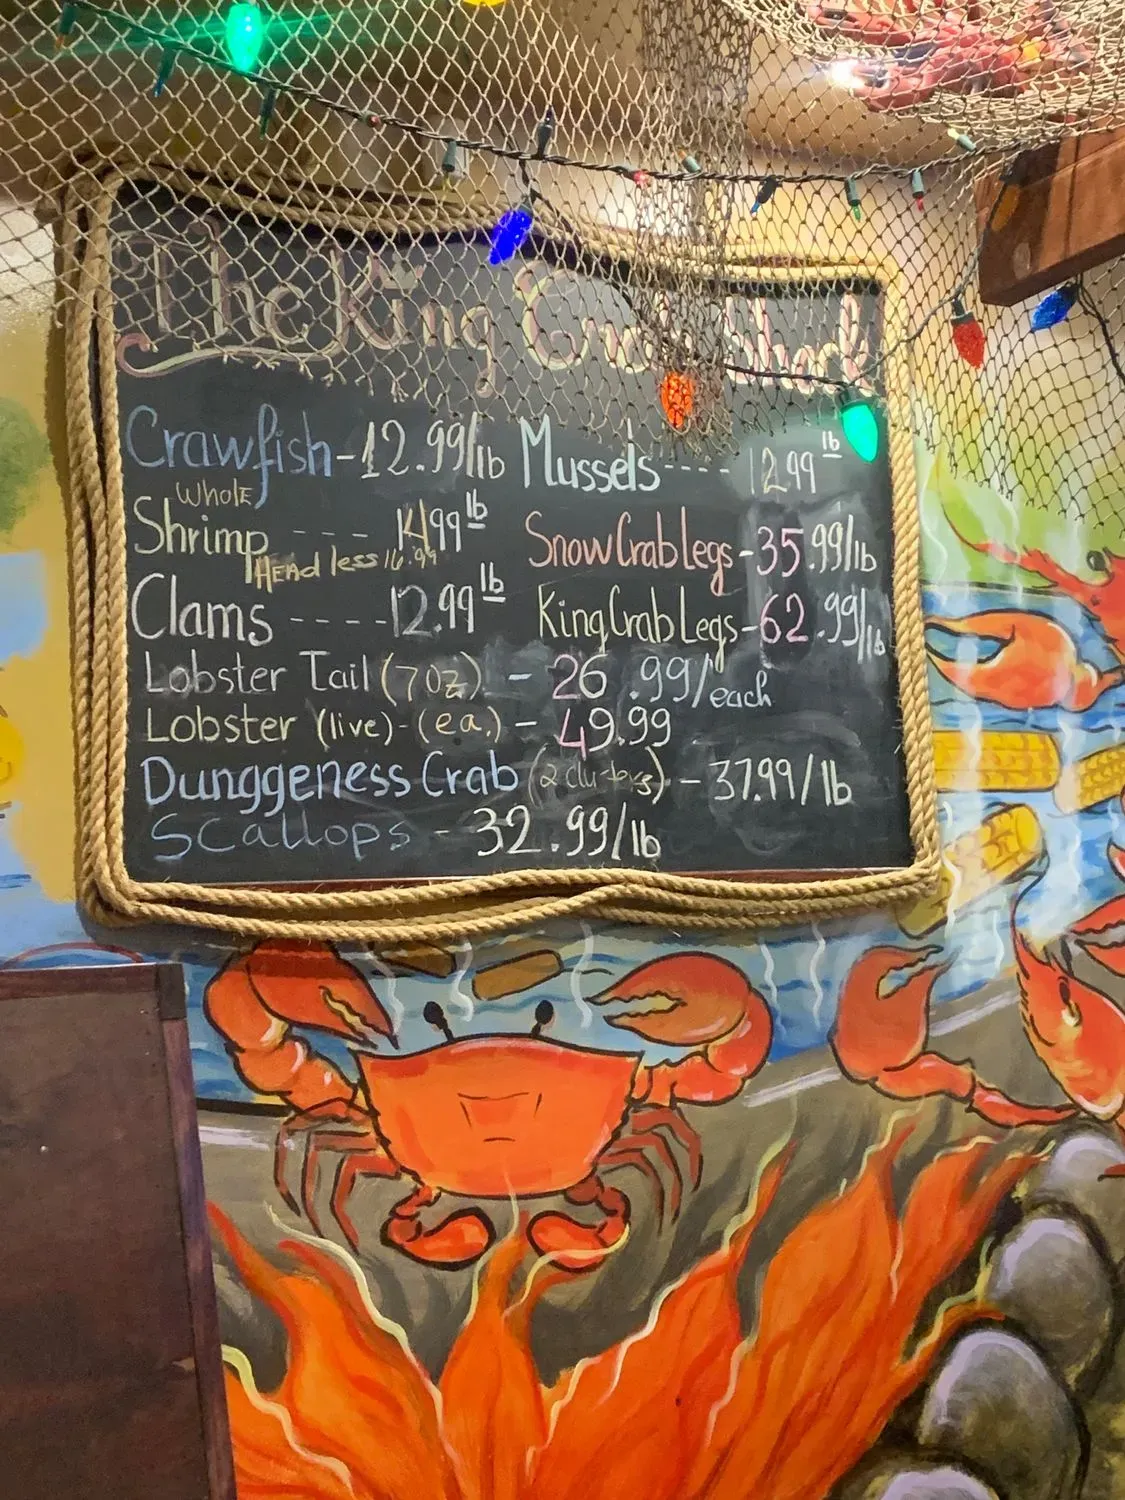 The King Crab Shack
Crawfish - 12.99/lb
Whole
Shrimp ---- 14.99 lb
Headless 16.99
Clams ---- 12.99 lb
Mussels ---- 12.99 lb
Snow Crab Legs - 35.99/lb
King Crab Legs - 62.99/lb
Lobster Tail (7oz) - 26.99/each
Lobster (live) - (ea.) - 49.99
Dunggeness Crab (2 clusters) - 37.99/lb
Scallops - 32.99/lb